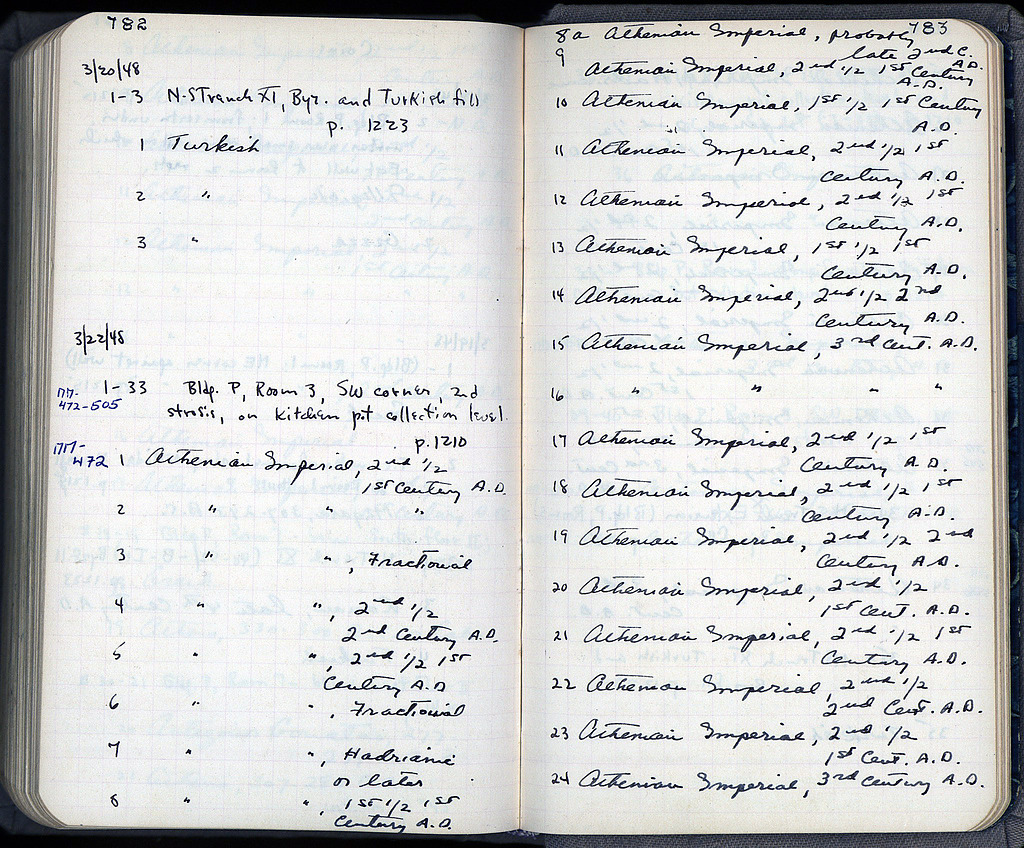 782
3/20/48
1-3 N-S Trench XI, Byz. and Turkish fill
p. 1223
1 Turkish
2 "
3 "
3/22/48
ΠΠ-
472-505
1-33 Bldg. P, Room 3, SW corner, 2nd
strosis, on kitchen pot collection level.
p. 1210
ΠΠ-
472 1 Athenian Imperial, 2nd 1/2
1st Century A.D.
2 " " "
3 " ", Fractional
4 " ", 2nd 1/2
2nd Century A.D.
5 " ", 2nd 1/2 1st
Century A.D
6 " ", Fractional
7 " ", Hadrianic
or later
8 " ", 1st 1/2 1st
Century A.D.
783
8a Athenian Imperial, probably
late 2nd C.
A.D.
9 Athenian Imperial, 2nd 1/2 1st Century
A.D.
10 Athenian Imperial, 1st 1/2 1st Century
A.D.
11 Athenian Imperial, 2nd 1/2 1st
Century A.D.
12 Athenian Imperial, 2nd 1/2 1st
Century A.D.
13 Athenian Imperial, 1st 1/2 1st
Century A.D.
14 Athenian Imperial, 2nd 1/2 2nd
Century A.D.
15 Athenian Imperial, 3rd Cent. A.D.
16 " " " "
17 Athenian Imperial, 2nd 1/2 1st
Century A.D.
18 Athenian Imperial, 2nd 1/2 1st
Century A.D.
19 Athenian Imperial, 2nd 1/2 2nd
Century A.D.
20 Athenian Imperial, 2nd 1/2
1st Cent. A.D.
21 Athenian Imperial, 2nd 1/2 1st
Century A.D.
22 Athenian Imperial, 2nd 1/2
2nd Cent. A.D.
23 Athenian Imperial, 2nd 1/2
1st Cent. A.D.
24 Athenian Imperial, 3rd Century A.D.